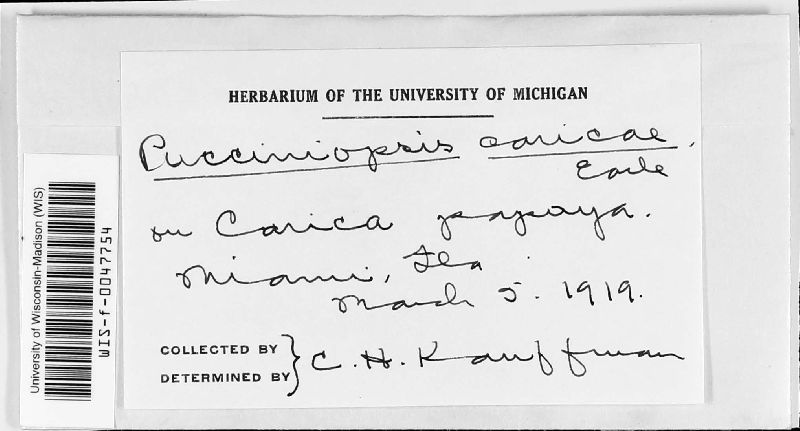 HERBARIUM OF THE UNIVERSITY OF MICHIGAN
Pucciniopsis caricae,
Earle
on Carica papaya.
Miami, Fla
March 5. 1919.
COLLECTED BY
DETERMINED BY } C. H. Kauffman
University of Wisconsin-Madison (WIS)
WIS-f-0047754